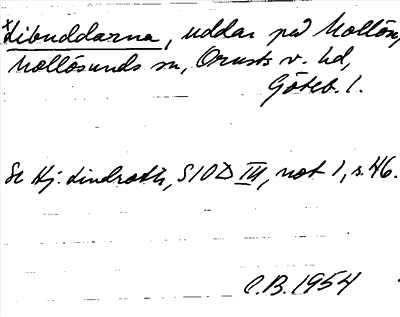 *Libuddarna, uddar på Mollön,
Mollösunds sn, Orusts v. hd,
Göteb. l.
Se Hj. Lindroth, SIOD III, not 1, s. 46.
C.B. 1954